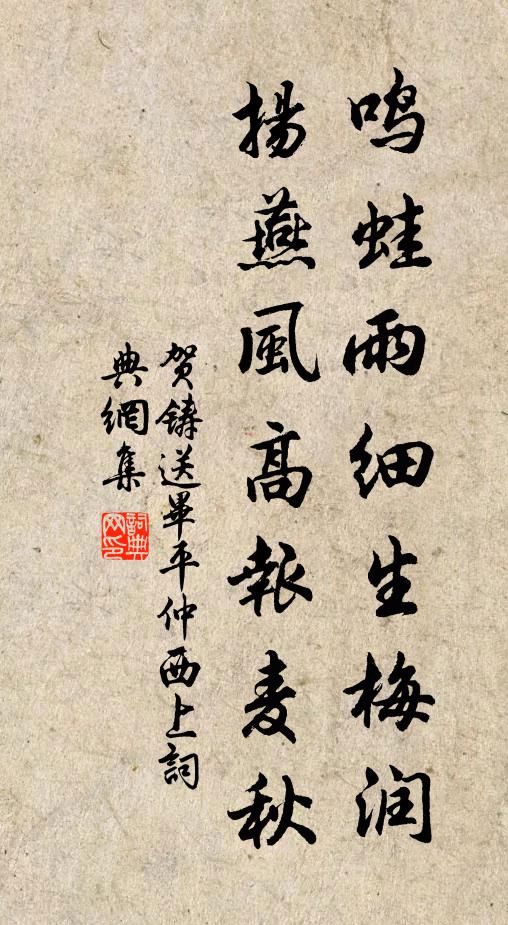 鸣蛙雨细生梅润
揚燕風高報麦秋
贺鑄送畢平仲西上詞
典網集
詞典网印